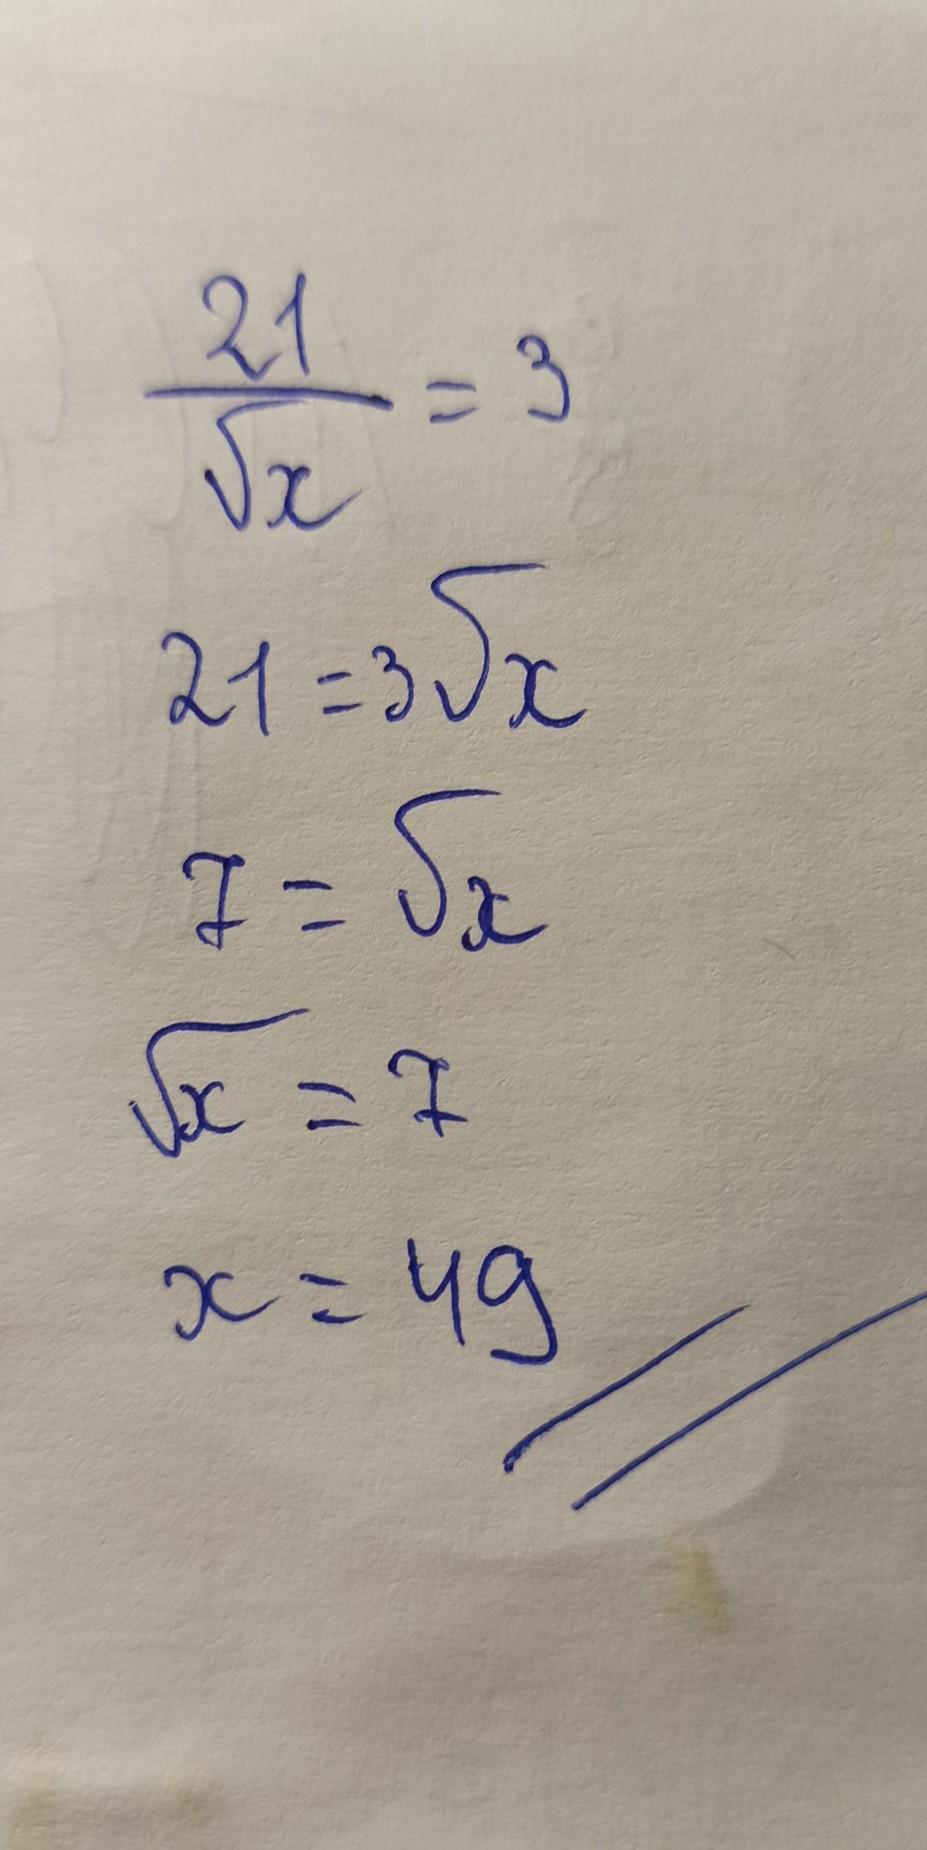 21/√x = 3
21 = 3√x
7 = √x
√x = 7
x = 49